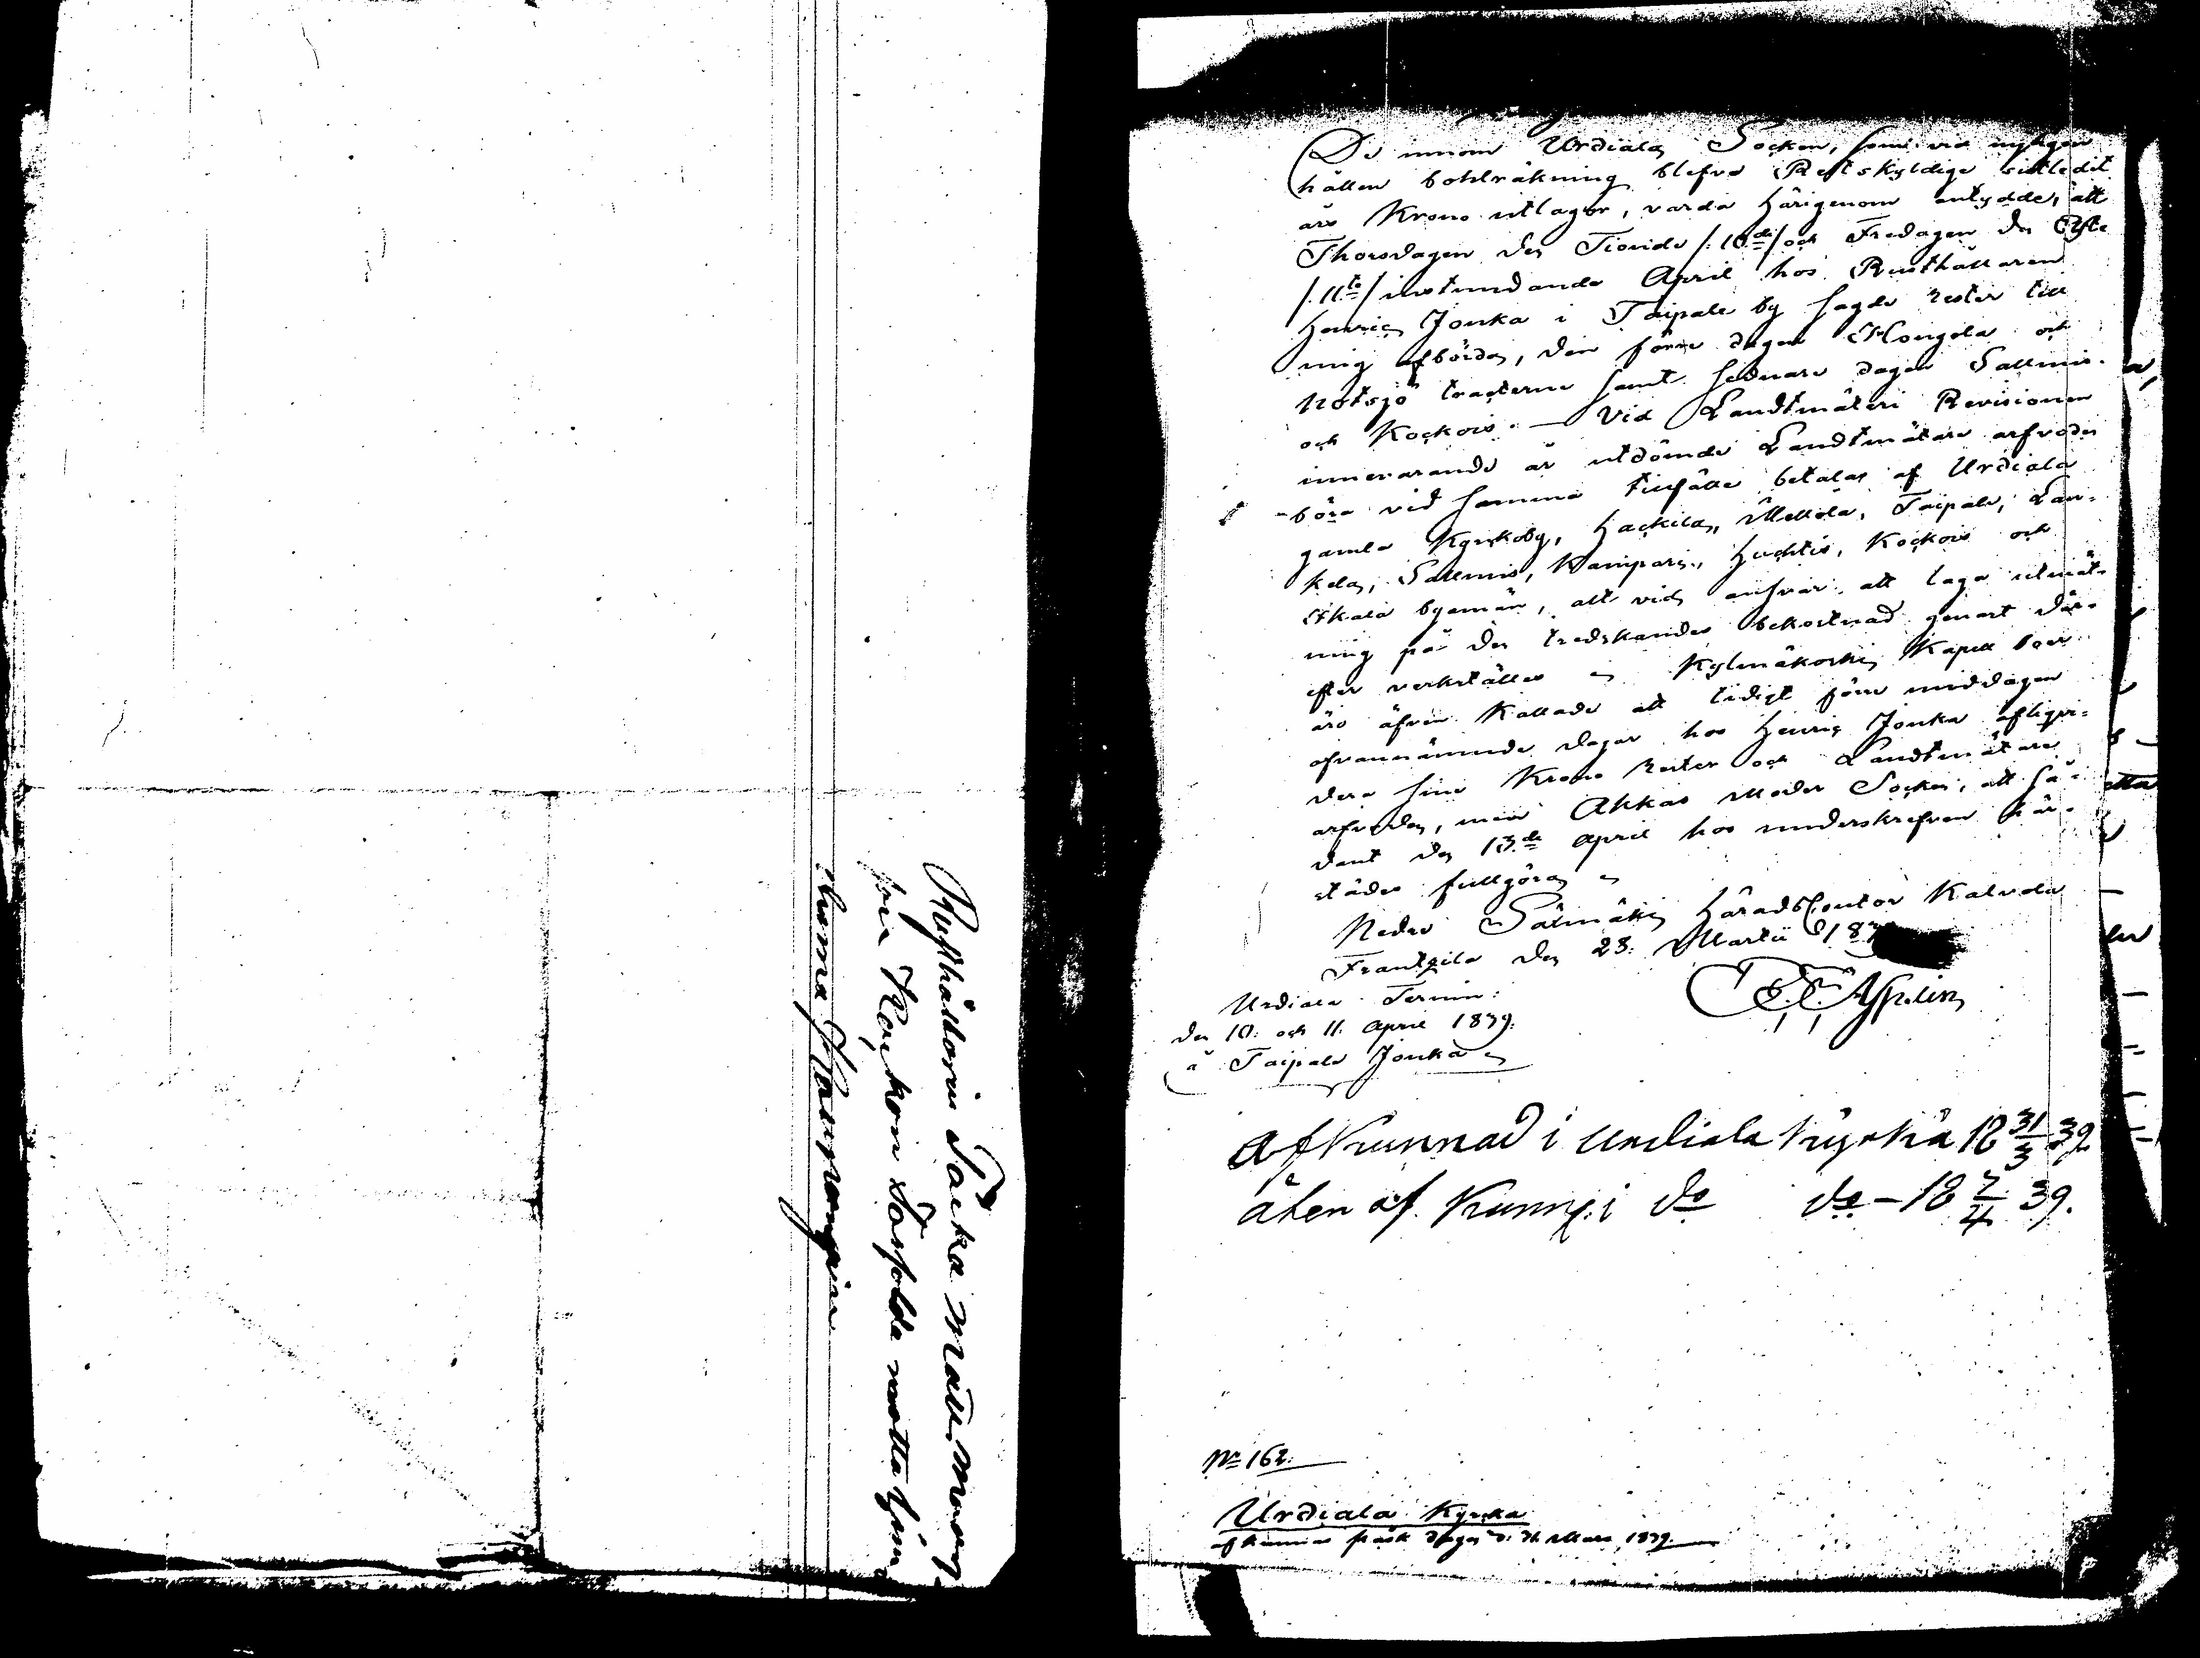 Rusthållarin Jacka
för Kouckon
De innom Urdiala Socken, som vid nyligen
hållen bohlräkning blefvo Restskyldige sistledit
års Krono utlagor, varda härigenom antydde, att
Thorsdagen den Tionde /:10de/ och Fredagen den Elfte
/:11te/ instundande April hos Rusthållaren
Henric Jonka i Taipale by sagde rester till
mig afbörda, den förre dagen Hongola och
Notsjö tracterne samt sednare dagen Sallmis
och Kockois. — Vid Landtmäteri Revisionen
innevarande år utdömde Landtmätare arfvoden
böra vid samma tillfälle betalas af Urdiala
gamla Kyrkoby, Hackila, Mellola, Taipale, Lau-
kela, Sallmis, Kamparis, Huchtis, Kockois och
Ikala byamän, allt vid ansvar att laga utmät-
ning på de tredskandes bekostnad genast där-
efter verkställes Kylmäkoski Kapell boer
äro äfven kallade att tidigt förre middagen
ofvannämnde dagar hos Henric Jonka afliqvi-
dera sine Krono rester och Landtmätare
arfvoden, men Akkas Moder Socken, att så-
dant den 13de April hos underskrefven här-
städes fullgöra
Nedre Säxmäki Härads Contor Kalvola
Frantzila den 23. Martii
Asplin
Urdiala Termin:
den 10: och 11. April 1839.
å Taipale Jonka
Afkunnad i Urdiala kyrka 18 31/3 39
åter af kunn: i do do — 18 7/4 39.
No 162.
Urdiala Kyrka
afkunnas påsk dagen d. 31 Mars 1839.